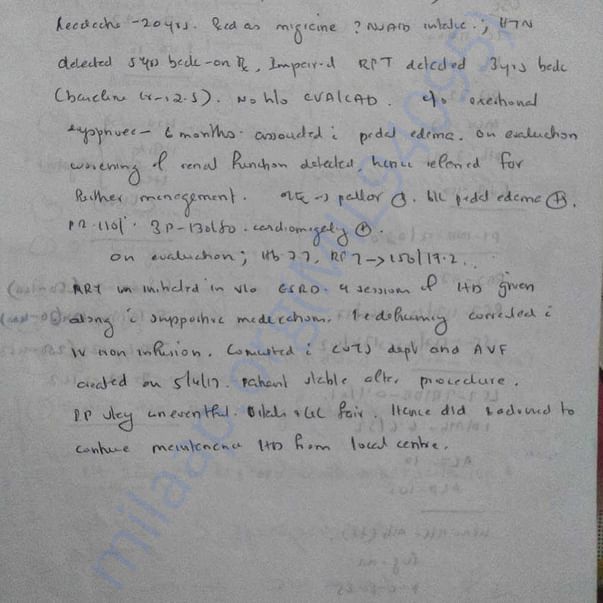 headache - 20 yrs. Red as migraine ? NSAID intake.; HTN
detected 5 yrs back - on Rx, Impaired RFT detected 3 yrs back
(baseline Cr - 2.5). No h/o CVA/CAD. c/o exertional
dyspnoea - 6 months. associated c pedal edema. on evaluation
worsening of renal function detected, hence referred for
further management. O/E -> pallor +. b/l pedal edema +.
PR-110/'. BP-130/80. cardiomegaly +.
on evaluation; Hb 7.7, RFT -> 150/
RRT was initiated in v/o ESRD. 4 session of HD given
along c supportive medications. corrected c
IV iron infusion. Consulted c CVTS dept and AVF
created on 5/4/17. Patient stable after procedure.
stay uneventful. GC fair. Hence to
continue maintenance HD from local centre.
milaap.org